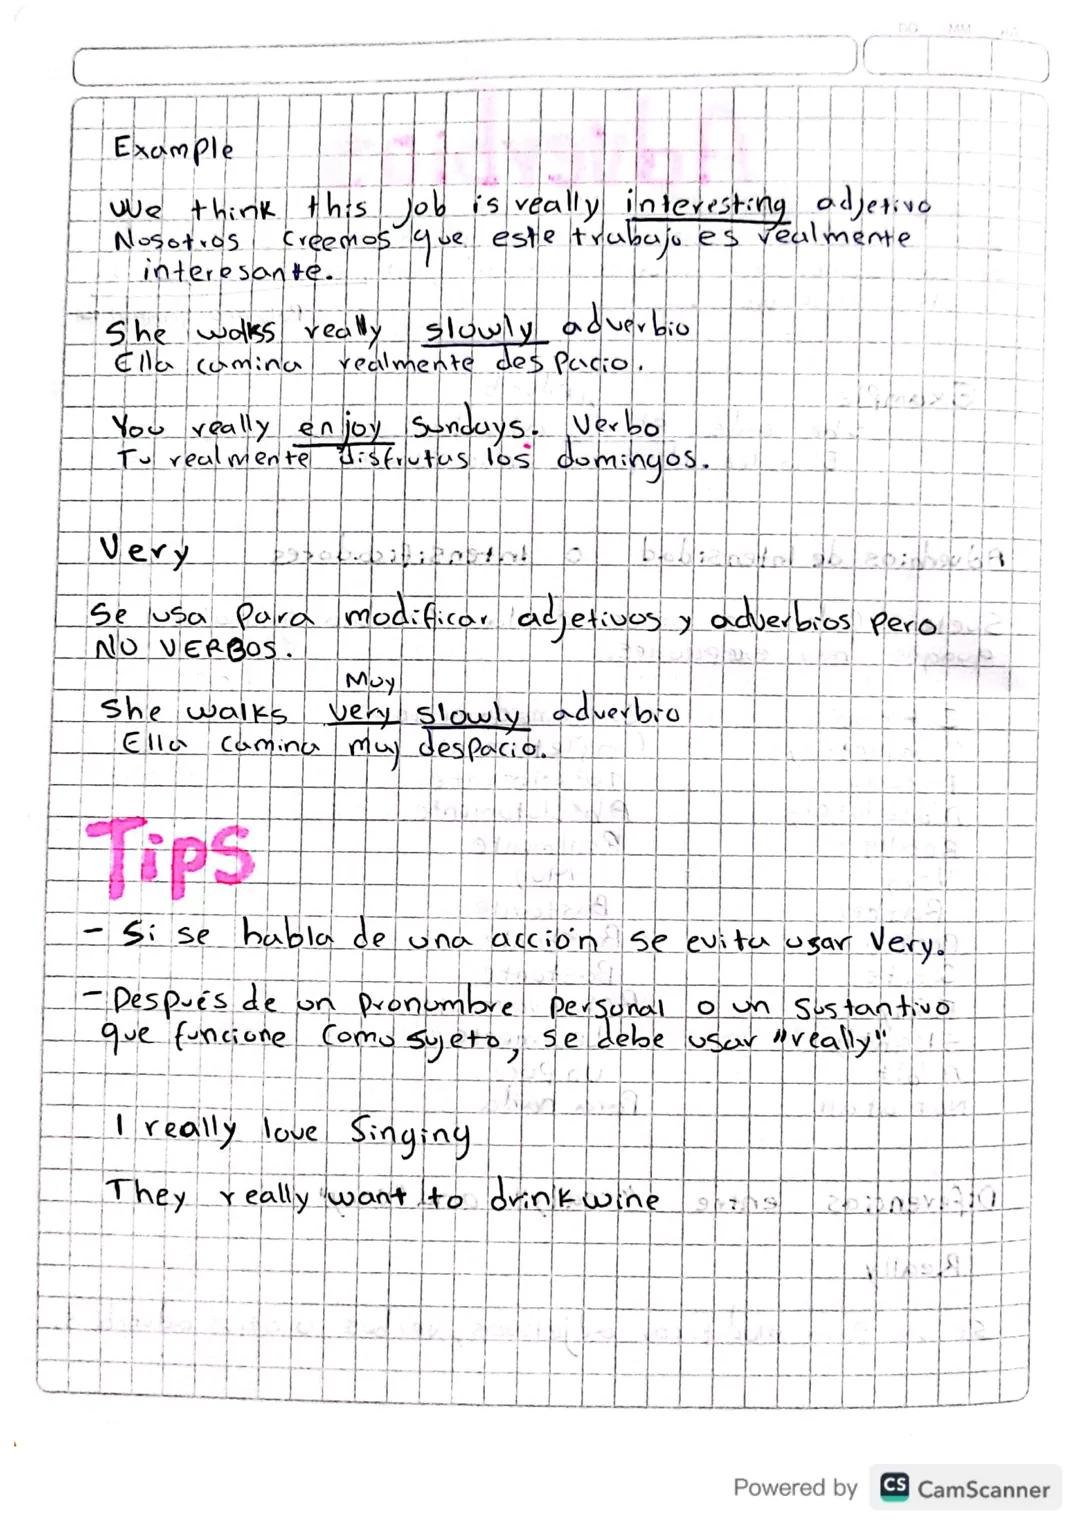 Example
We think this job is really interesting adjetivo
Nosotros creemos que este trabajo es realmente
interesante.
She walks really slowly adverbio
Ella camina realmente despacio.
You really enjoy Sundays. Verbo
Tu realmente disfrutas los domingos.
Very
Se usa para modificar adjetivos y adverbios pero
NO VERBOS.
Muy
She walks very slowly adverbio
Ella camina muy despacio.
Tips
- Si se habla de una acción se evita usar Very.
- Después de un pronombre personal o un Sustantivo
que funcione como sujeto, se debe usar "really"
I really love Singing
They really want to drink wine
Powered by CS CamScanner